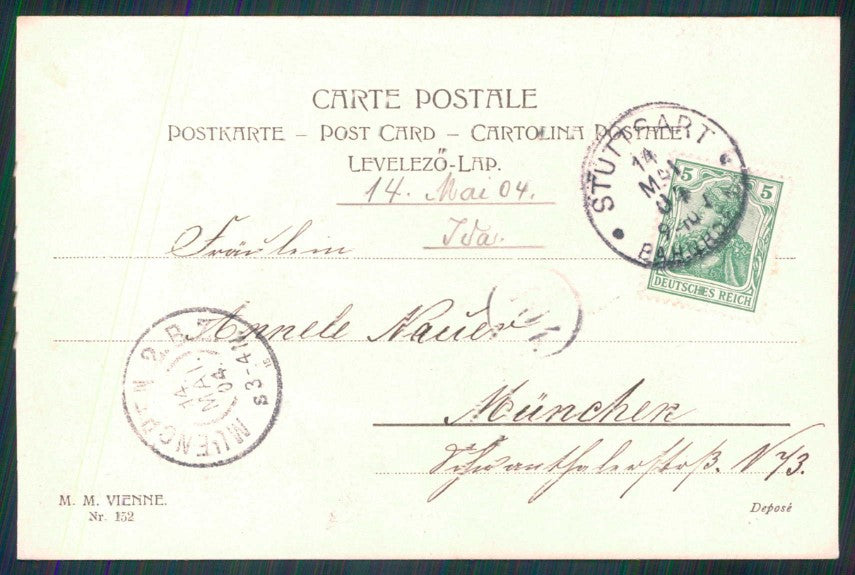 CARTE POSTALE
POSTKARTE – POST CARD – CARTOLINA POSTALE
LEVELEZŐ-LAP.
14. Mai 04.
Ida.
STUTTGART
14
MAI
04
BAHNHOF
5 5
DEUTSCHES REICH
Fräulein
Annele Nauer
München
Schwanthalerstrß. N 73.
MUENCHEN 2 B.Z.
14
MAI.
04.
S3-4N
M. M. VIENNE.
Nr. 132
Deposé